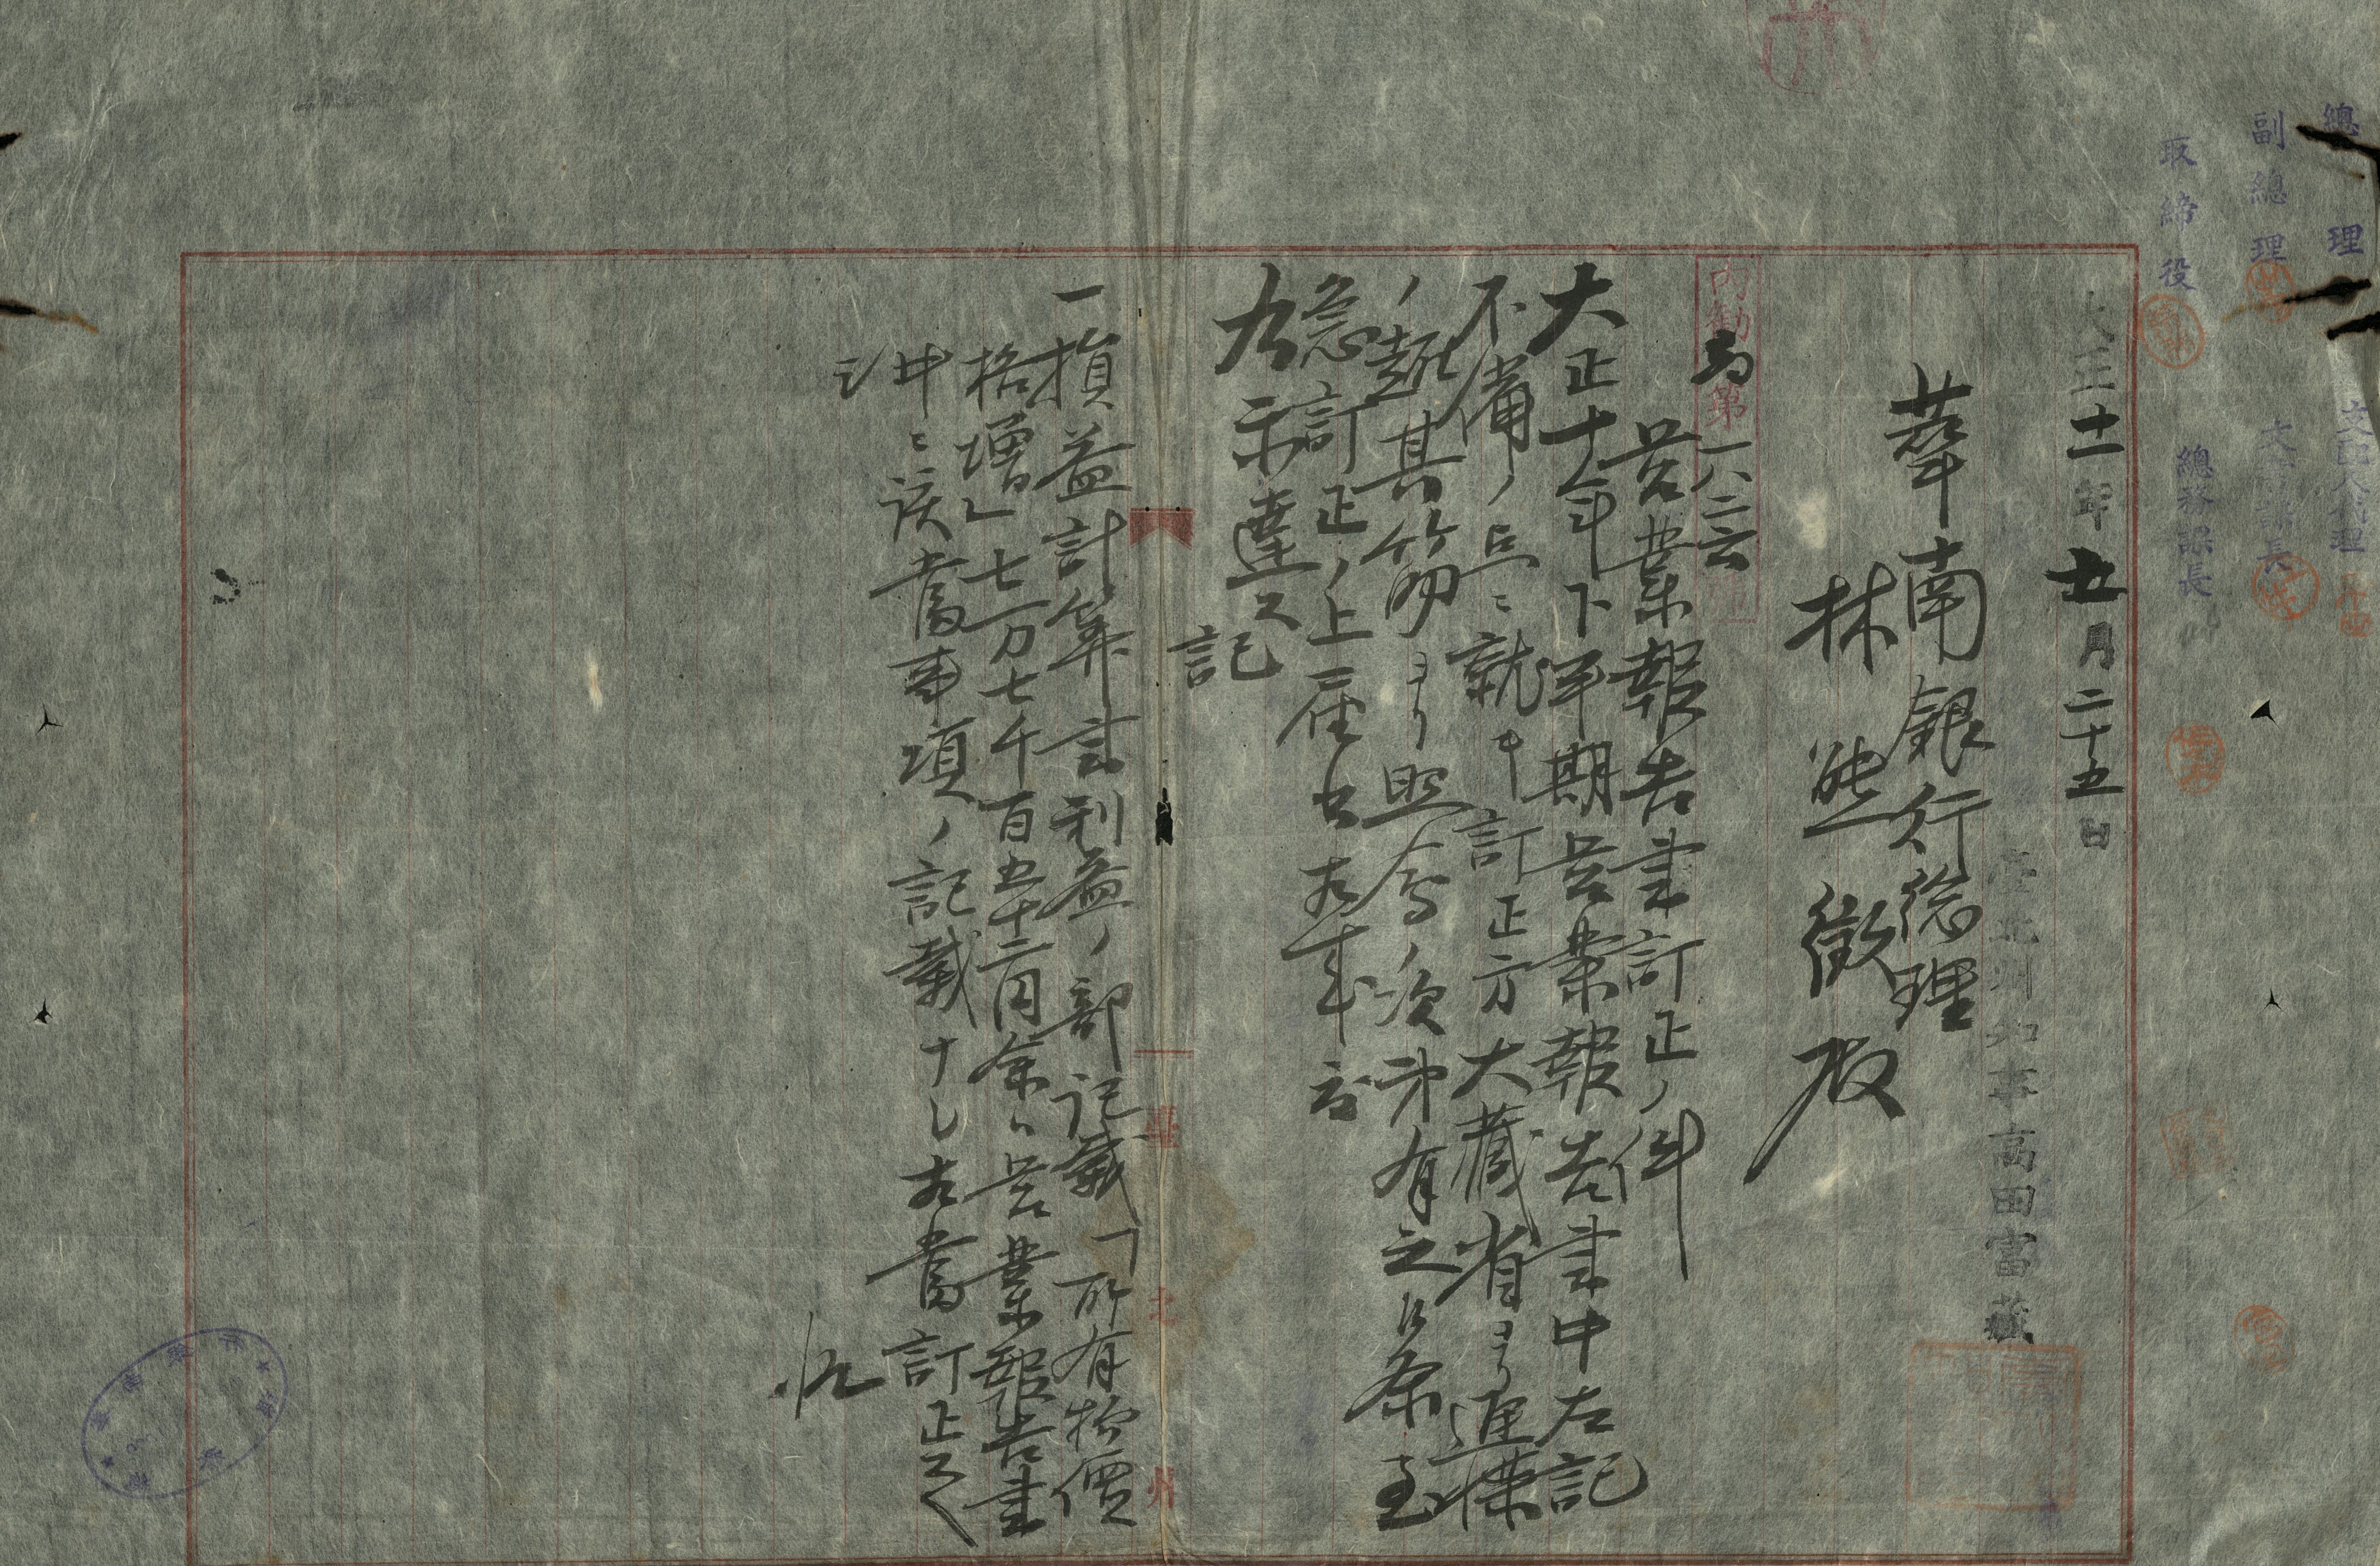 總理
副總理
取締役
總務課長
大正十一年五月二十五日
臺北州知事高田富藏
華南銀行総理
林熊徴殿
内勧第一八二六
営業報告書訂正ノ件
大正十年下半期営業報告書中左記
不備ノ点ニ就キ訂正方大蔵省ヨリ進様
ノ趣其筋ヨリ照会ノ次第有之候条至
急訂正ノ上屆出相成
右示達ス
記
一損益計算書利益ノ部記載ノ所有物價
格増シ七万七千百五十二円余ハ営業報告書
中ニ該當事項ノ記載ナシ相當訂正スヘ
シ
臺北州